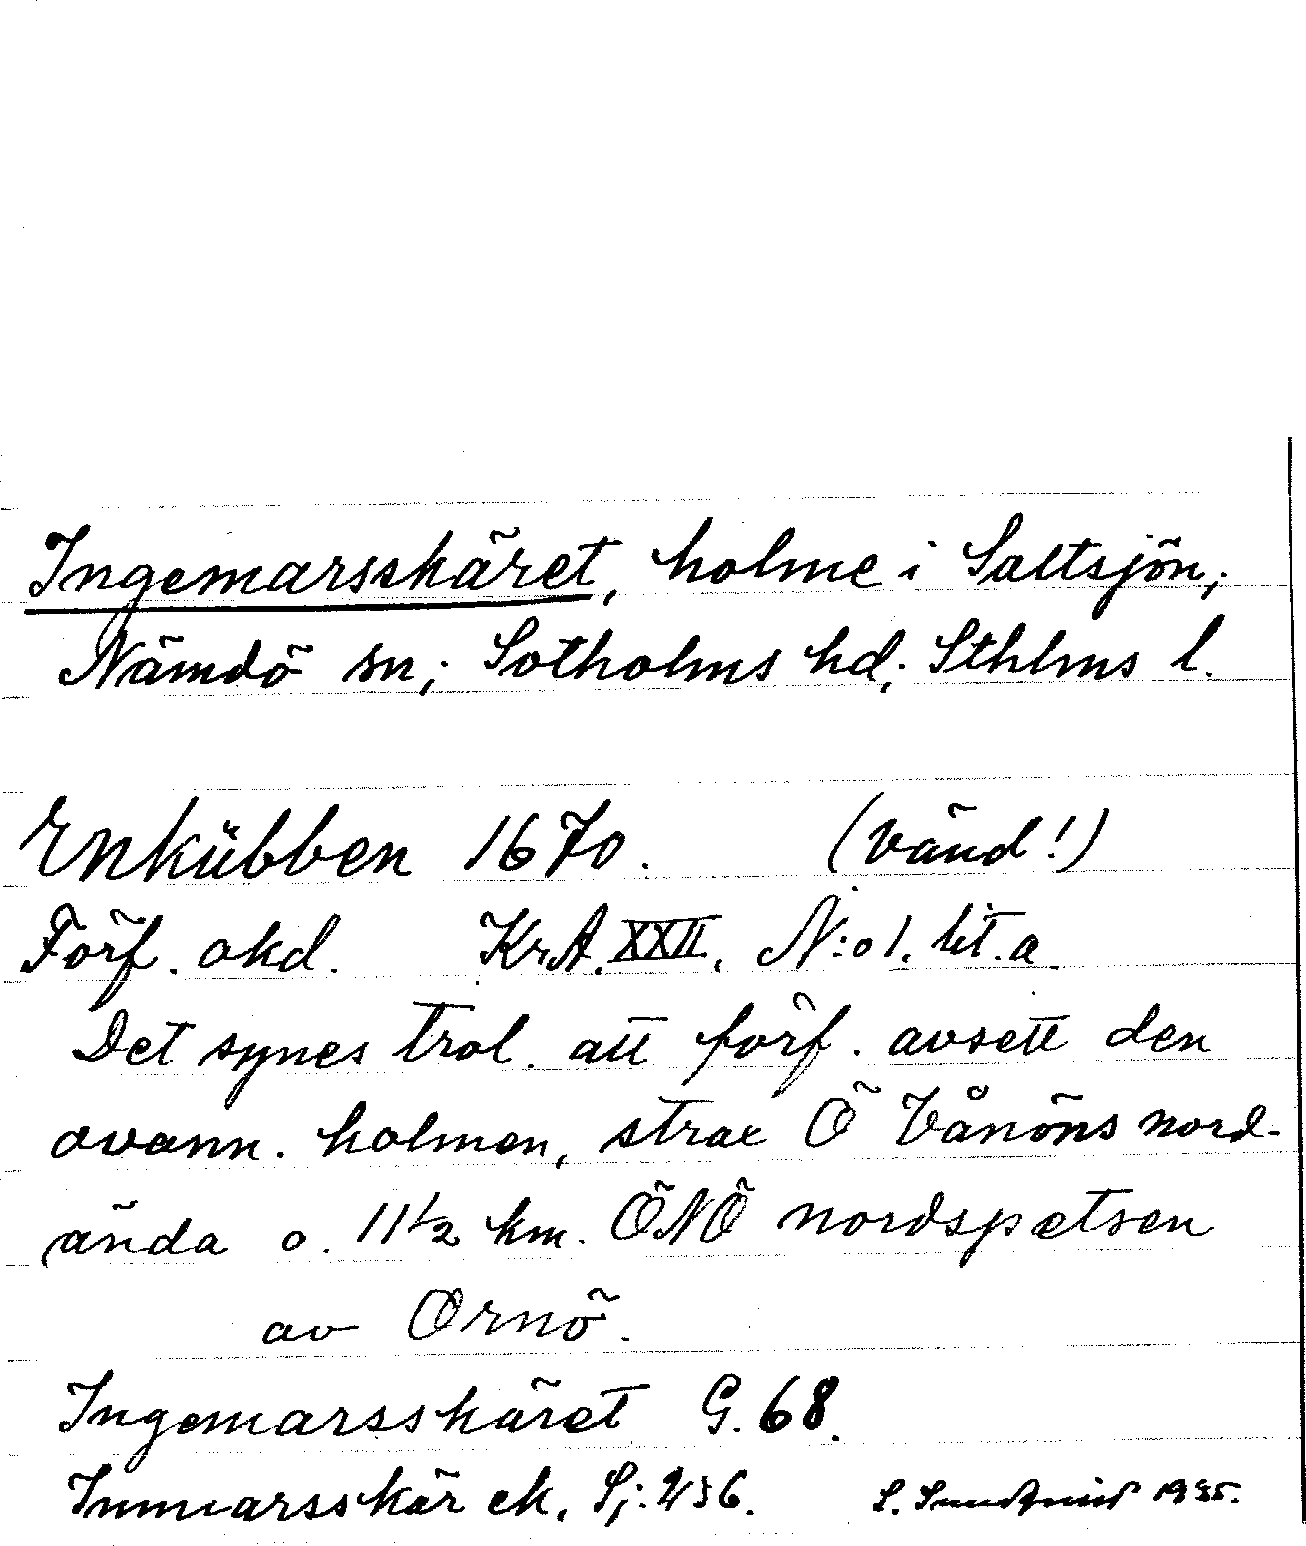 Ingemarsskäret, holme i Saltsjön,
Nämdö sn; Sotholms hd; Sthlms l.
Enkübben 1670. (vänd!)
Förf. okd. KrA. XXII, N:o 1. lit. a
Det synes trol. att förf. avsett den
ovann. holmen, strax Ö Vånöns nord-
ända o. 11 1/2 km. ÖNÖ nordspetsen
av Ornö.
Ingemarsskäret G. 68.
Immarsskär ek. Sj: 256. S. 1935.